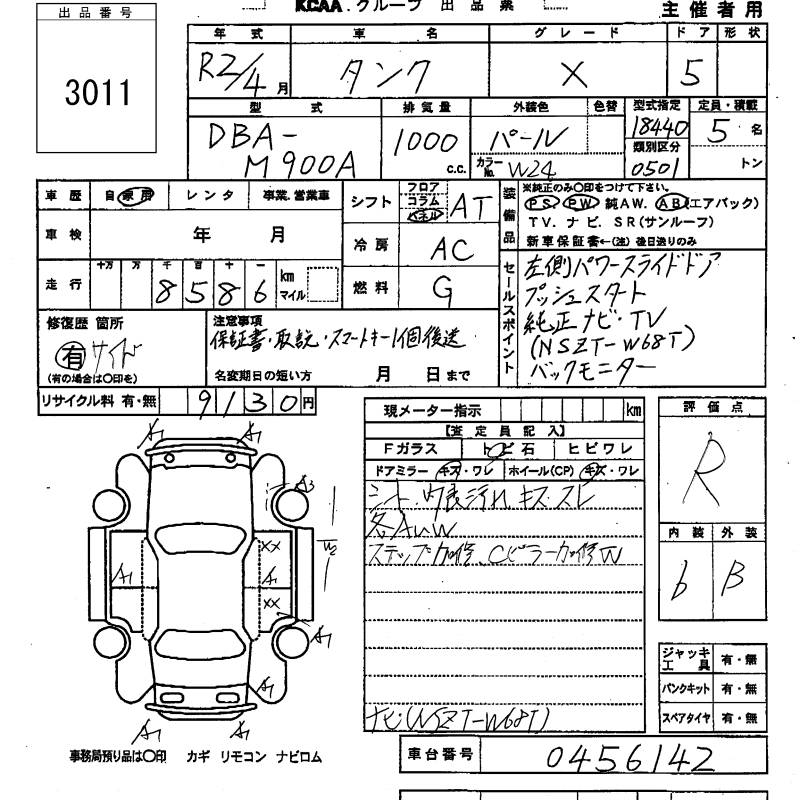 KCAA. グループ 出品票
主催者用
出品番号
3011
年式 車名 グレード ドア 形状
R2/4月 タンク X 5
型式 排気量 外装色 色替 型式指定 定員・積載
DBA-M900A 1000c.c. パール 18440 5名
カラーNo. W24 類別区分 0501 トン
車歴 自家用 レンタ 事業.営業車
車検 年 月
走行 十万 万 千 百 十 一 km マイル
8586
シフト フロア コラム パネル AT
冷房 AC
燃料 G
装備品
※純正のみ〇印をつけて下さい。
PS PW 純AW. AB(エアバック)
TV. ナビ. SR(サンルーフ)
新車保証書←(注)後日送りのみ
セールスポイント
左側パワースライドドア
プッシュスタート
純正ナビ・TV
(NSZT-W68T)
バックモニター
修復歴 箇所
有 サイド
(有の場合は〇印を)
注意事項
保証書・取説・スマートキー1個後送
名変期日の短い方 月 日まで
リサイクル料 有・無 9130円
現メーター指示 km
【査定員記入】
Fガラス トビ石 ヒビワレ
ドアミラー キズ・ワレ ホイール(CP) キズ・ワレ
シート、内装汚れ キズ スレ
各AUW
ステップ加修、Cピラー加修W
ナビ(NSZT-W68T)
評価点
R
内装 外装
b B
ジャッキ工具 有・無
パンクキット 有・無
スペアタイヤ 有・無
A1 A1
A3
W2
XX
A1 A1
XX
A1
A1
A1 A1
事務局預り品は〇印 カギ リモコン ナビロム
車台番号 0456142